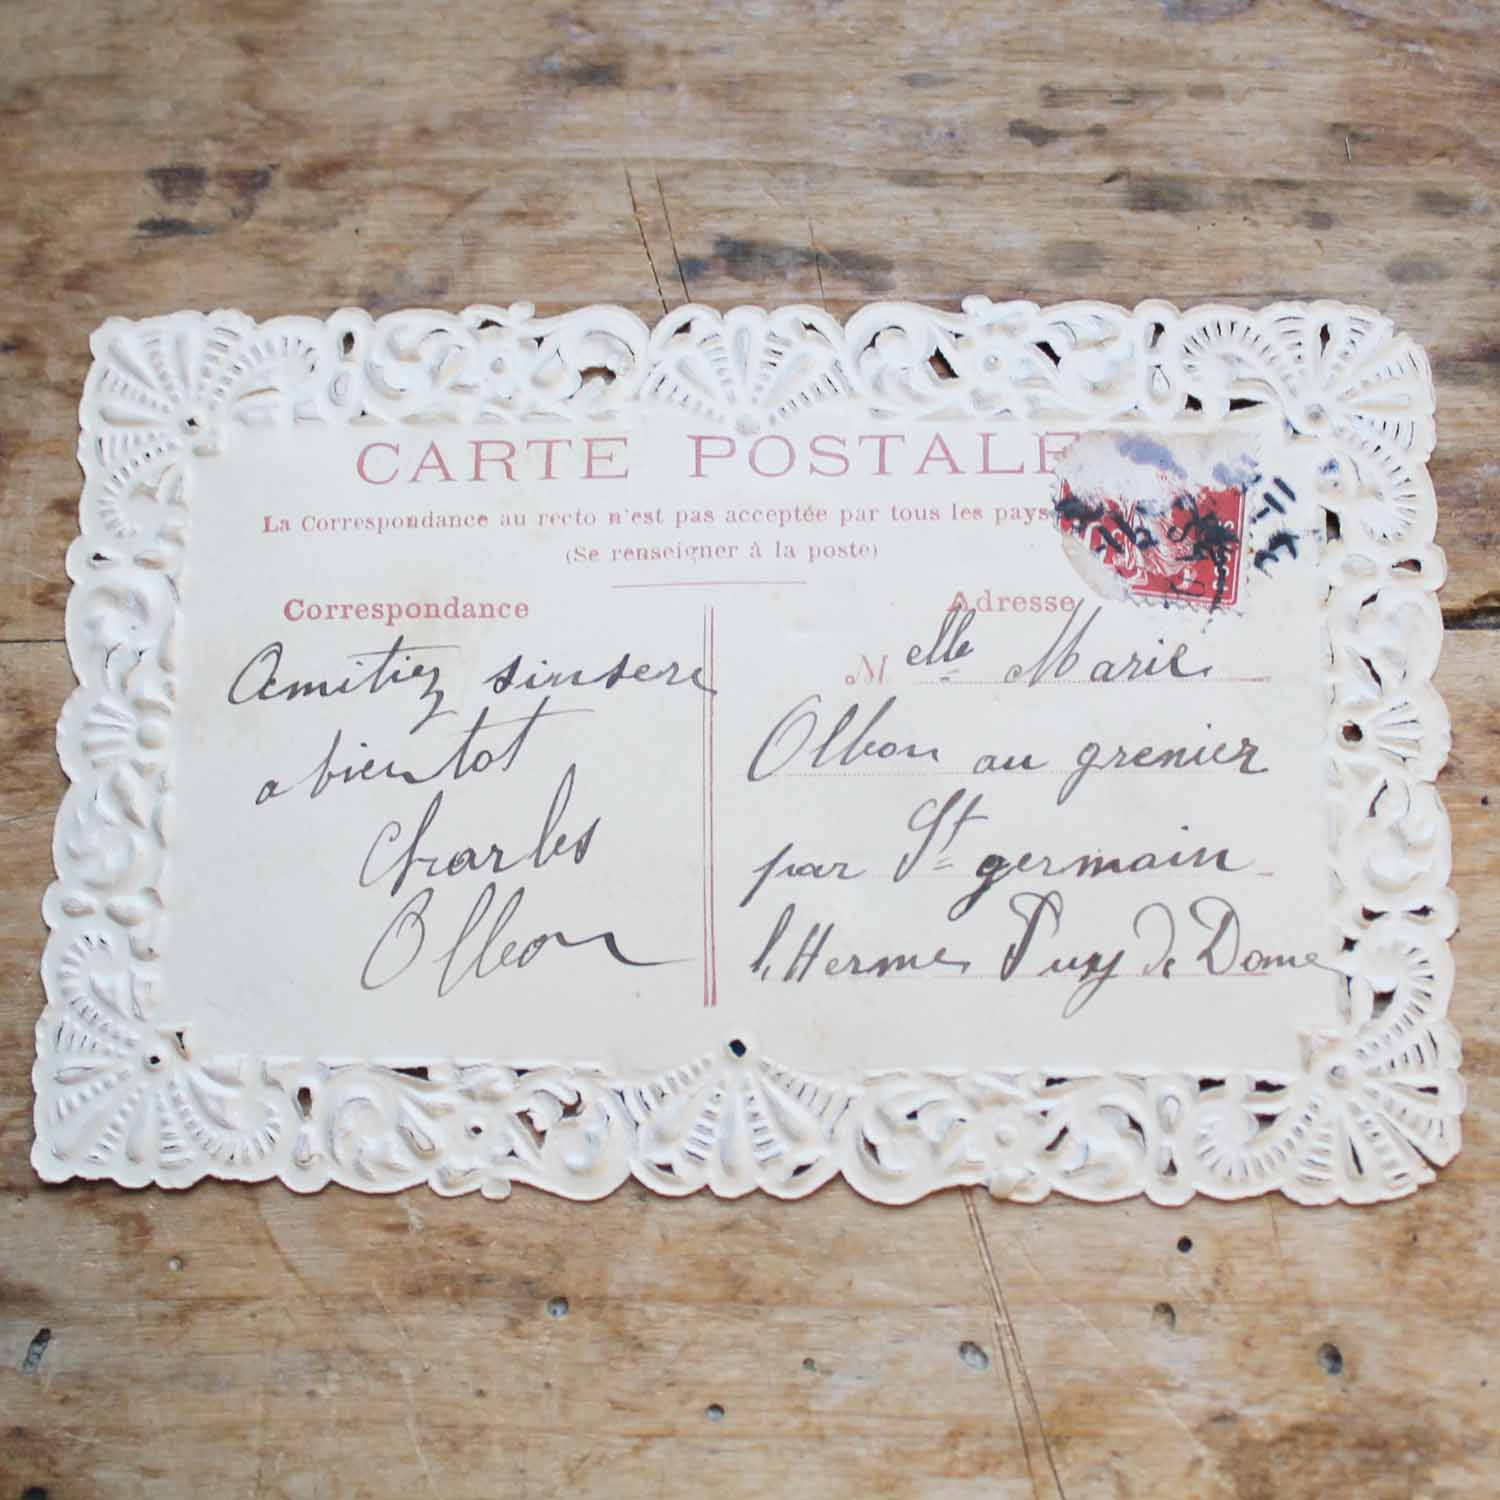 CARTE POSTALE
La Correspondance au recto n'est pas acceptée par tous les pays
(Se renseigner à la poste)
Correspondance
Amitiez sinsere
a bientot
Charles
Olleon
Adresse
Melle Marie
Olleon au grenier
par St germain
l'Herme Puy de Dome